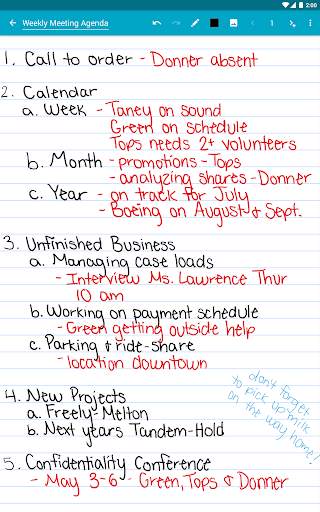 2:00
Weekly Meeting Agenda
1
1. Call to order - Donner absent
2. Calendar
a. Week - Taney on sound
Green on schedule
Tops needs 2+ volunteers
b. Month - promotions - Tops
- analyzing shares - Donner
c. Year - on track for July
- Boeing on August & Sept.
3. Unfinished Business
a. Managing case loads
- Interview Ms. Lawrence Thur
10 am
b. Working on payment schedule
- Green getting outside help
c. Parking & ride-share
- location downtown
don't forget
to pick up milk
on the way home!
4. New Projects
a. Freely Melton
b. Next years Tandem-Hold
5. Confidentiality Conference
- May 3-6 - Green, Tops & Donner